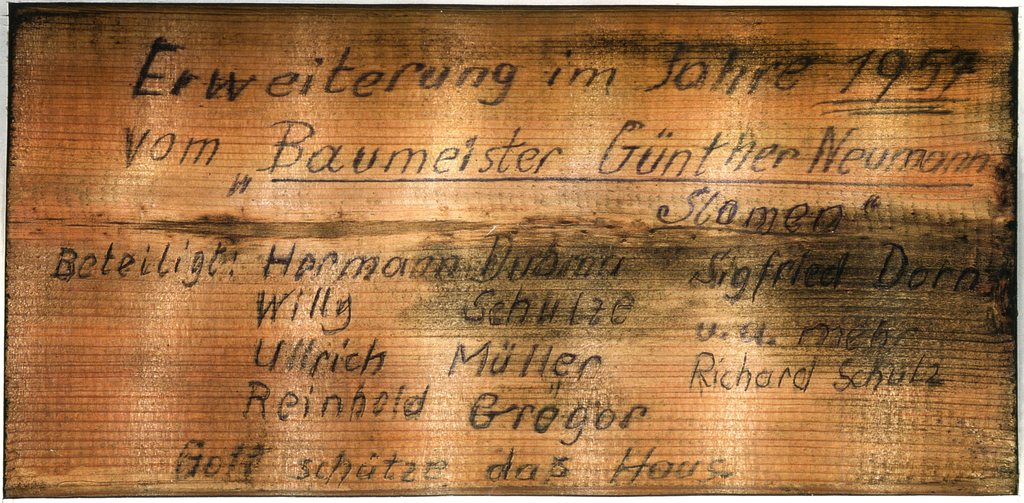 Erweiterung im Jahre 1957
vom Baumeister Günther Neumann
„ Slamen“
Beteiligt: Hermann Dubrau Sigfried Dorn
Willy Schulze u.u. mehr
Ullrich Müller Richard Schulz
Reinhold Grögor
Gott schütze daß Haus.